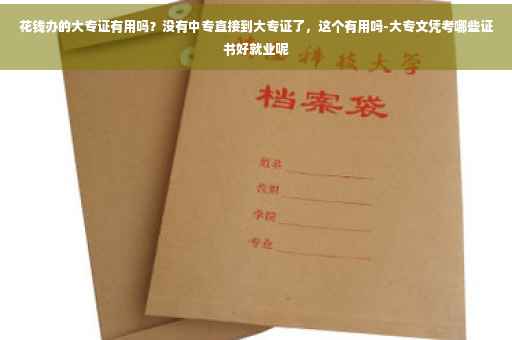 花钱办的大专证有用吗？没有中专直接到大专证了，这个有用吗-大专文凭考哪些证
书好就业呢
科技大学
档案袋
姓名
学院
专业